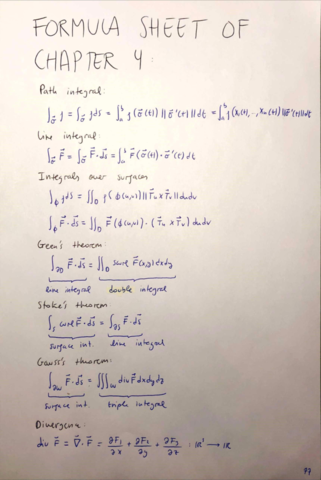 FORMULA SHEET OF
CHAPTER 4:
Path integral:
∫_σ⃗ f = ∫_σ⃗ f ds = ∫_a^b f(σ⃗(t)) ||σ⃗'(t)|| dt = ∫_a^b f(x₁(t),..,xₙ(t)) ||σ⃗'(t)|| dt
Line integral:
∫_σ⃗ F⃗ = ∫_σ⃗ F⃗·ds⃗ = ∫_a^b F⃗(σ⃗(t))·σ⃗'(t) dt
Integrals over surfaces
∫_ϕ f ds = ∬_D f(ϕ(u,v)) ||T⃗u × T⃗v|| du dv
∫_ϕ F⃗·ds⃗ = ∬_D F⃗(ϕ(u,v))·(T⃗u × T⃗v) du dv
Green's theorem:
∫_∂D F⃗·ds⃗ = ∬_D scurl F⃗(x,y) dx dy
line integral double integral
Stoke's theorem
∫_S curl F⃗·ds⃗ = ∫_∂S F⃗·ds⃗
surface int. line integral
Gauss's theorem:
∫_∂W F⃗·ds⃗ = ∭_W div F⃗ dx dy dz
surface int. triple integral
Divergence:
div F⃗ = ∇⃗·F⃗ = ∂F₁/∂x + ∂F₂/∂y + ∂F₃/∂z : ℝ³ → ℝ